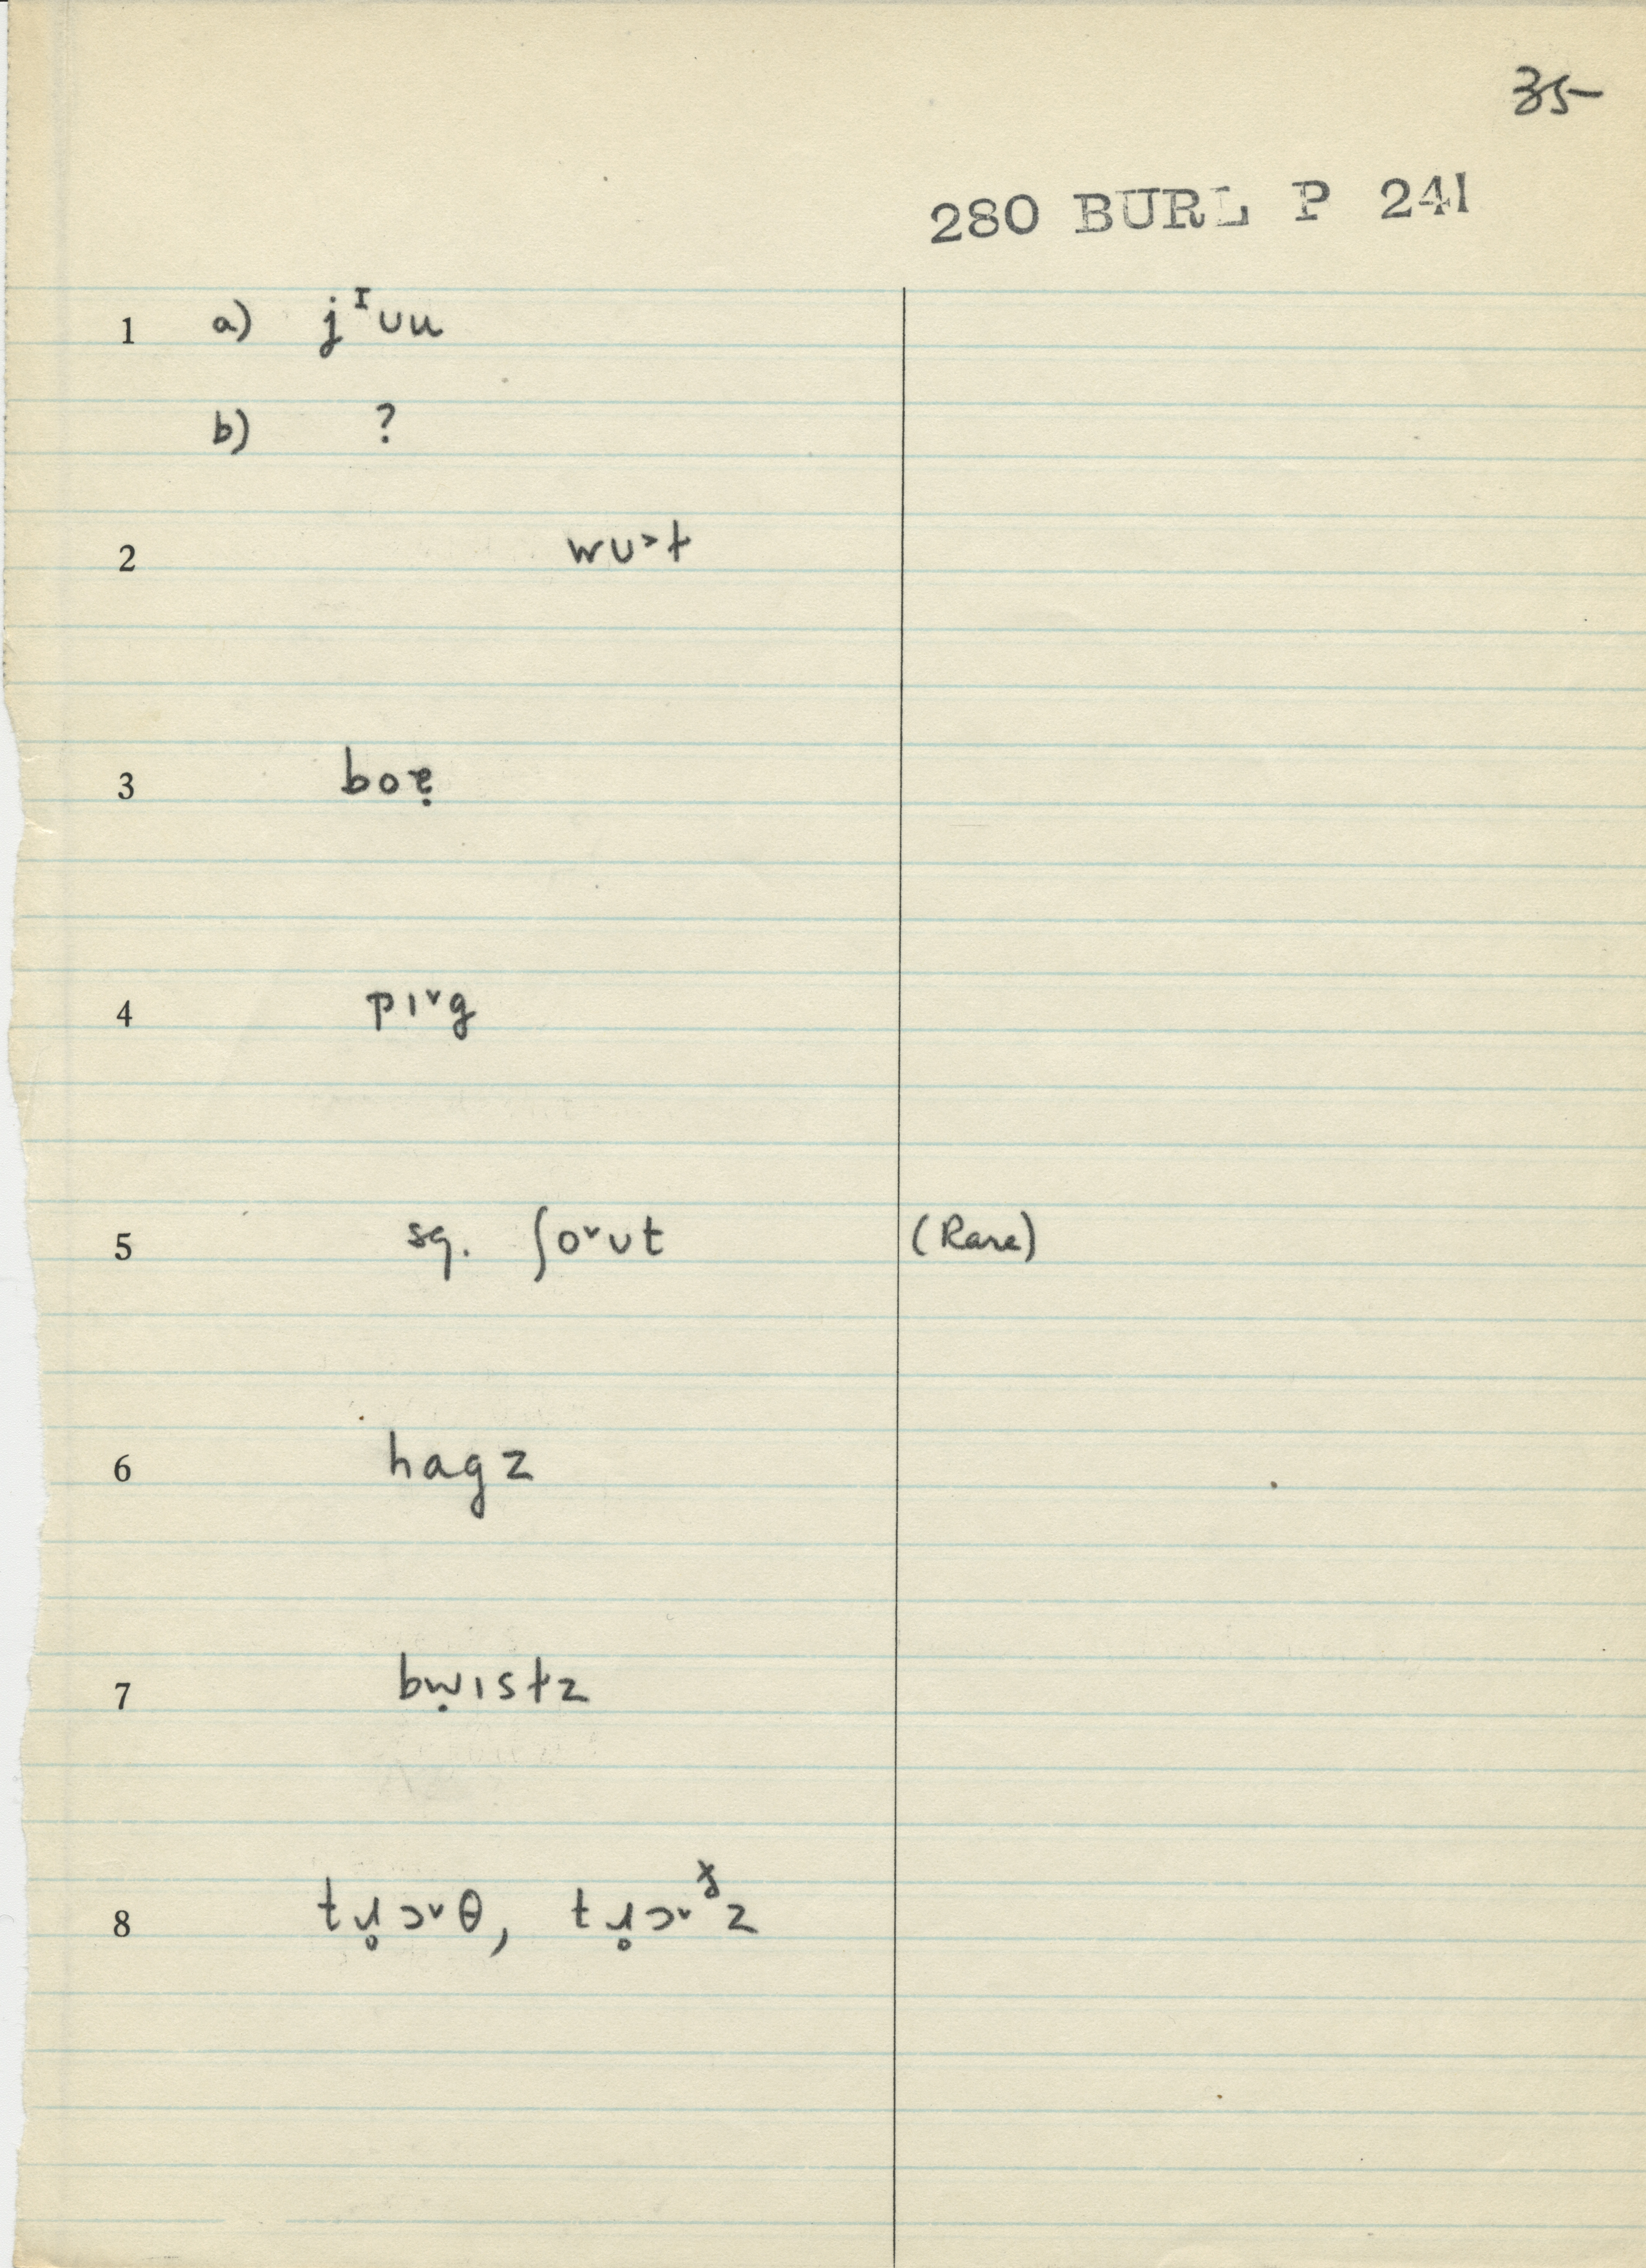 35
280 BURL P 241
1 a) jᶦʊu
b) ?
2 wʊ˃ƚ
3 boɐ̣
4 pɪ˅g
5 sg. ʃo˅ʊt (Rare)
6 hagz
7 bẉɪsƚz
8 tɹ̥ɔ˅θ, tɹ̥ɔ˅ᶽz